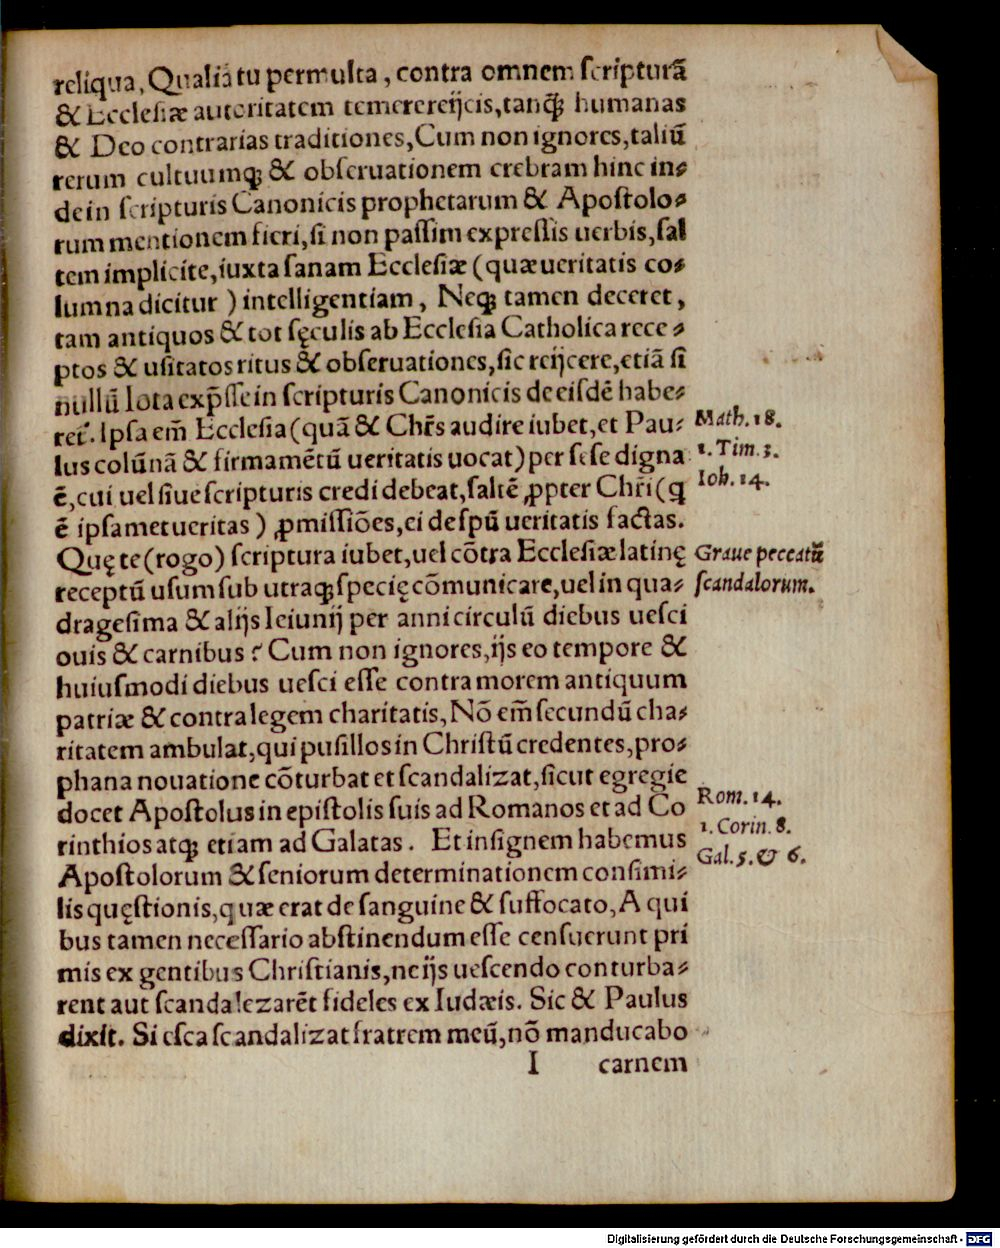 reliqua, Qualia tu permulta, contra omnem scripturā
& Ecclesiæ autoritatem temere reijcis, tanꝗ̃ humanas
& Deo contrarias traditiones, Cum non ignores, taliū
rerum cultuumꝗ; & obseruationem crebram hinc in⸗
de in scripturis Canonicis prophetarum & Apostolo⸗
rum mentionem fieri, si non passim expressis uerbis, sal
tem implicite, iuxta sanam Ecclesiæ (quæ ueritatis co⸗
lumna dicitur) intelligentiam, Neꝗ; tamen deceret,
tam antiquos & tot sęculis ab Ecclesia Catholica rece⸗
ptos & usitatos ritus & obseruationes, sic reijcere, etiā si
nullū Iota exp̄sse in scripturis Canonicis de eisdē habe⸗
ret᷑. Ipsa em̄ Ecclesia (quā & Chr̄s audire iubet, et Pau⸗
lus colūnā & firmamētū ueritatis uocat) per se se digna
ē, cui uel siue scripturis credi debeat, saltē ꝓpter Chr̄i (q
ē ipsamet ueritas) ꝓmissiōes, ei de spū ueritatis factas.
Quę te (rogo) scriptura iubet, uel cōtra Ecclesiæ latinę
receptū usum sub utraꝗ; specię cōmunicare, uel in qua⸗
dragesima & alijs Ieiunij per anni circulū diebus uesci
ouis & carnibus? Cum non ignores, ijs eo tempore &
huiusmodi diebus uesci esse contra morem antiquum
patriæ & contra legem charitatis, Nō em̄ secundū cha⸗
ritatem ambulat, qui pusillos in Christū credentes, pro⸗
phana nouatione cōturbat et scandalizat, sicut egregie
docet Apostolus in epistolis suis ad Romanos et ad Co
rinthios atꝗ; etiam ad Galatas. Et insignem habemus
Apostolorum & seniorum determinationem consimi⸗
lis quęstionis, quæ erat de sanguine & suffocato, A qui
bus tamen necessario abstinendum esse censuerunt pri
mis ex gentibus Christianis, ne ijs uescendo conturba⸗
rent aut scandalezarēt fideles ex Iudæis. Sic & Paulus
dixit. Si esca scandalizat fratrem meū, nō manducabo
I carnem
Math. 18.
1. Tim. 3.
Ioh. 14.
Graue peccatū
scandalorum.
Rom. 14.
1. Corin. 8.
Gal. 5. & 6.
Digitalisierung gefördert durch die Deutsche Forschungsgemeinschaft - DFG